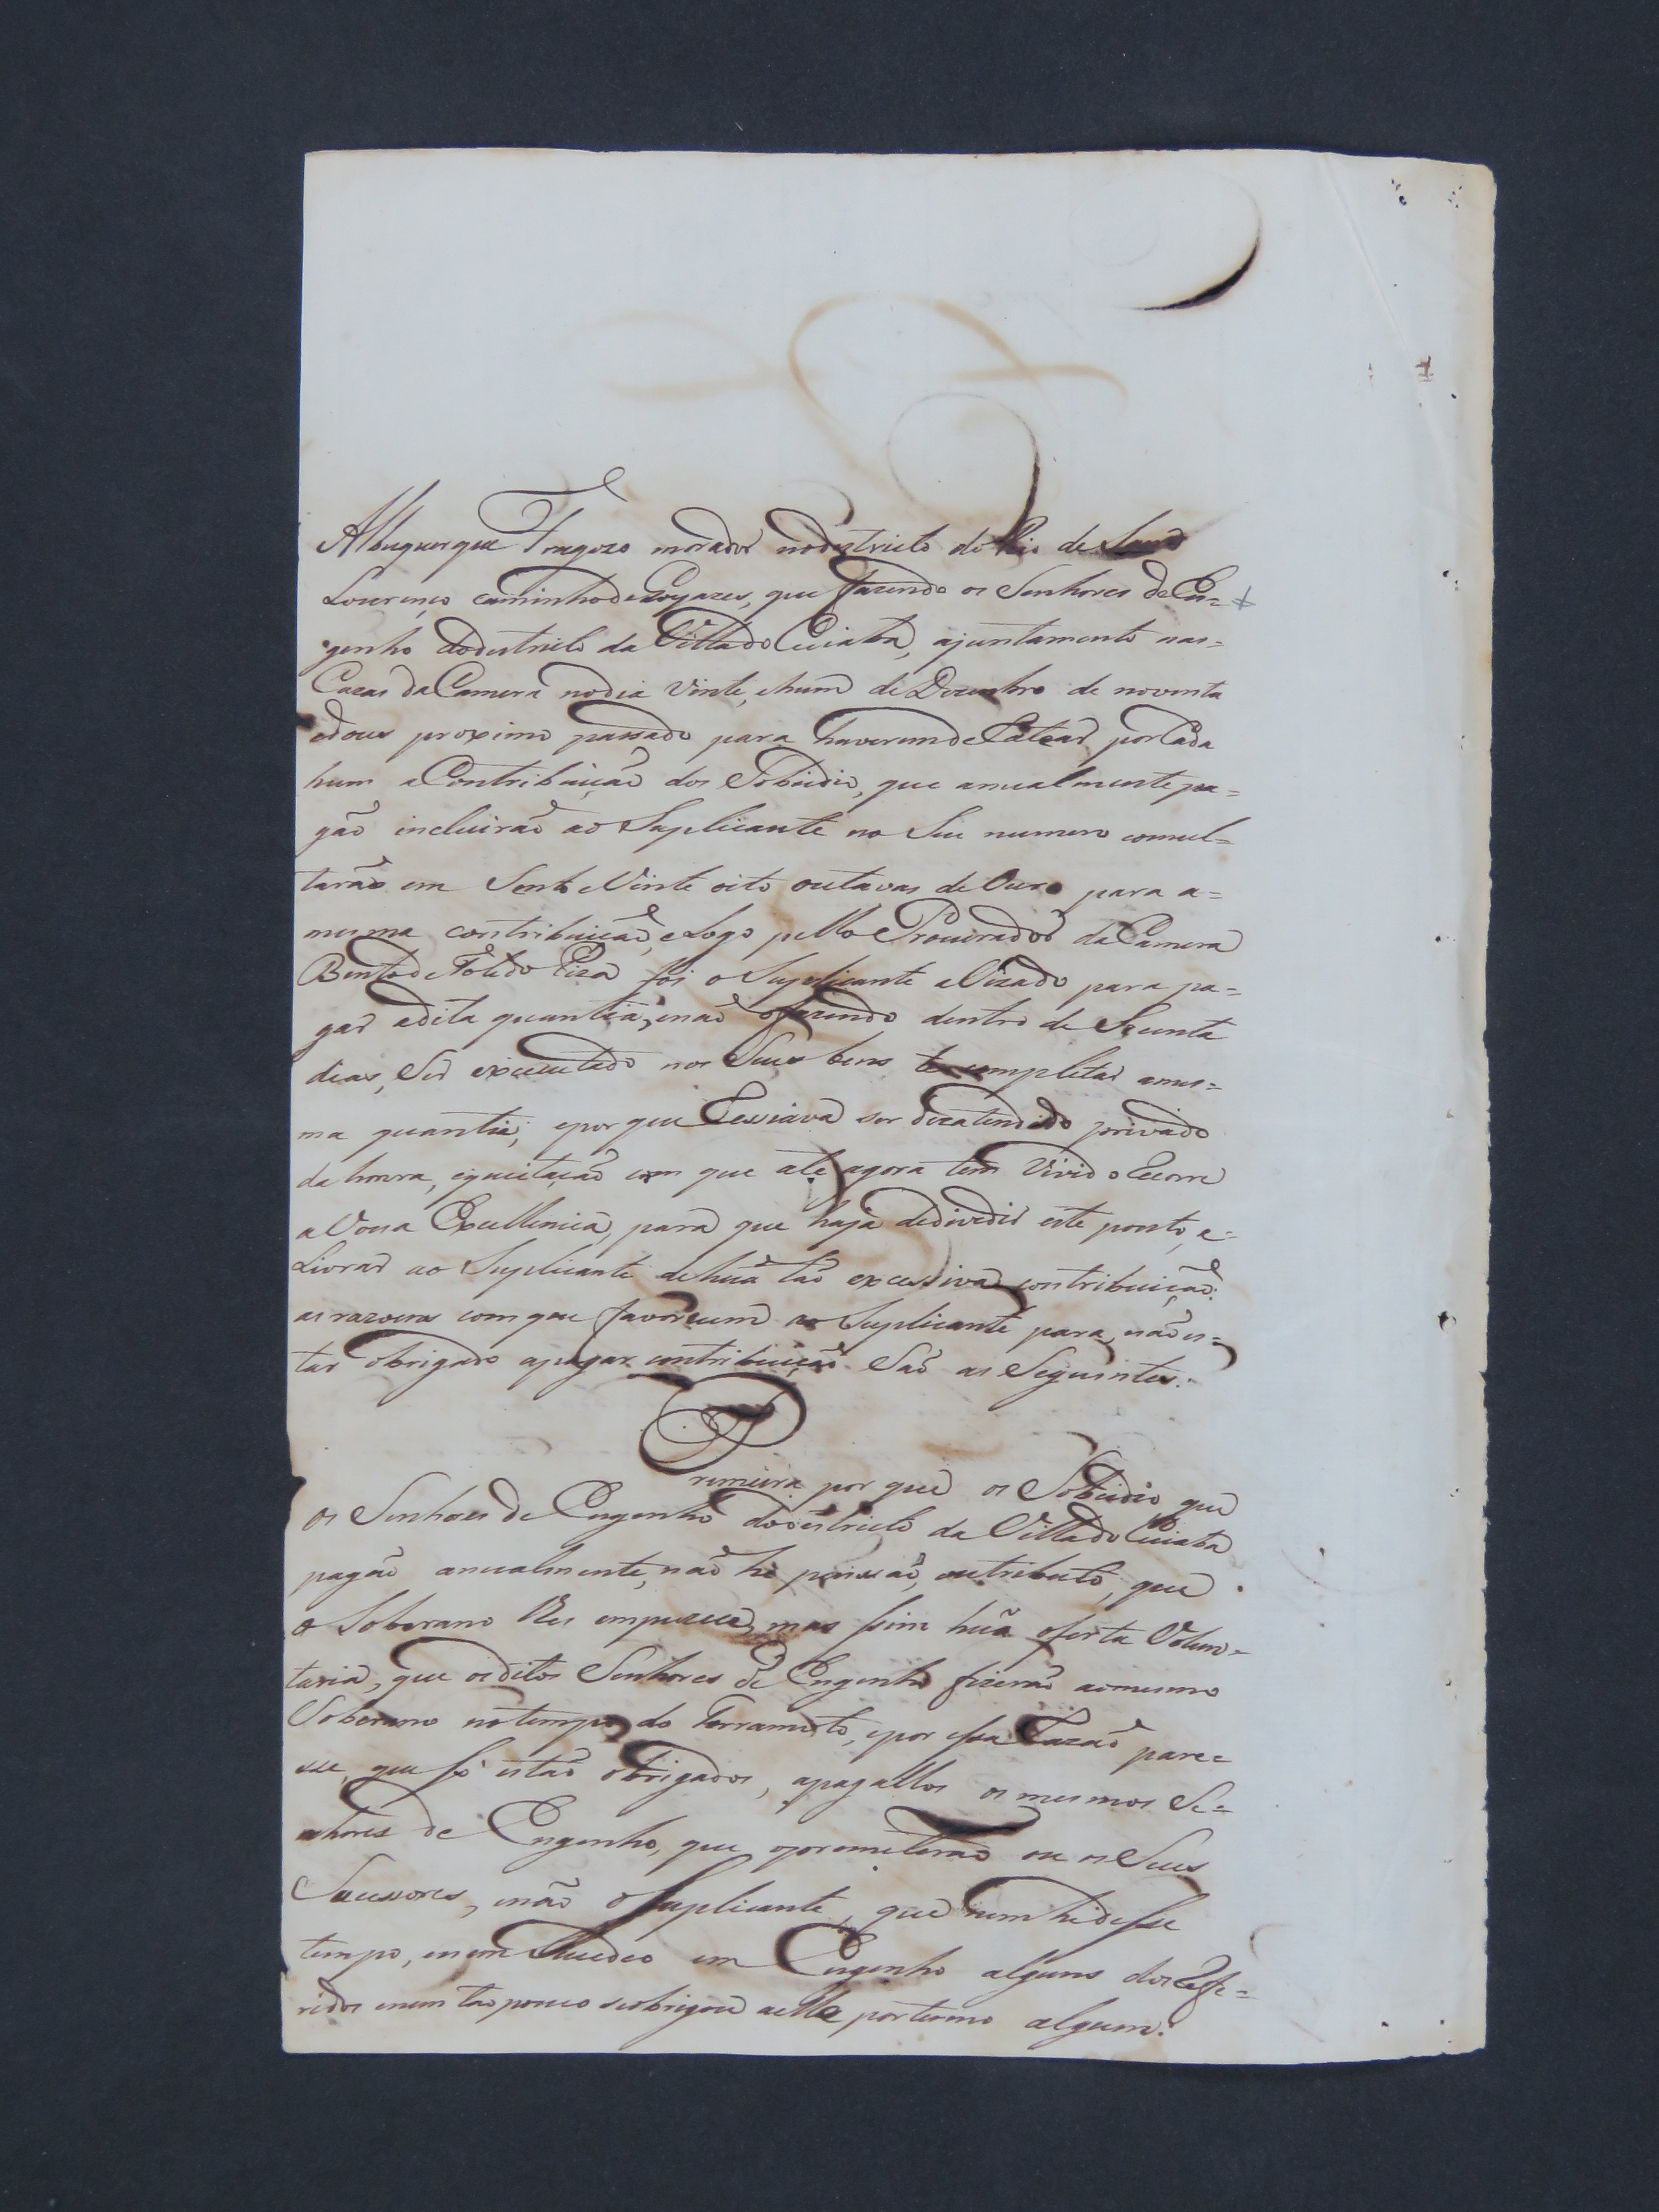 Albuquerque Fragozo morador nodestricto do Rio de Saõ
Lourenço caminho de Goyazes, que fazendo os Senhores de En=
genho dodestricto da Villa do Cuiabá, ajuntamento nas=
Cazas da Camera nodia Vinte, ehum de Dezembro de noventa
edous proximo passado para haverem de Ratear por Cada
hum aContribuiçaõ dos Sobsidio, que anualmente pa=
gaõ incluiraõ ao Suplicante no Seu numero comul=
taraõ em Sento eVinte oito outavas de Ouro para a=
mesma contribuiçaõ, eLogo pello Procurador da Camera
Bento de Toledo Piza foi o Suplicante aVizado para pa=
gar adita quantia, enaõ ofazendo dentro de Secenta
dias, Ser executado nos Seus bens the completar ames=
ma quantia; epor que Resciava ser dezatendido privado
da honra, equietaçaõ com que ate agora tem Vivido Recorre
aVossa Excellencia, para que haja dedividir este ponto, e=
Livrar ao Suplicante dehuã taõ excessiva contribuiçaõ:
as razoens com que favorecem ao Suplicante para naõ es=
tar obrigado apagar contribuiçaõ Saõ as Seguintes:
Primeira por que os Sobsidio que
os Senhores de Engenho dodestricto da Villa do Cuiabá
pagaõ anualmente, naõ he pensaõ, outributo, que
o Soberano Rei empuzece, mas sim huã oferta Volun=
taria, que osditos Senhores de Engenho fizeraõ aomesmo
Soberano notempo do Terramoto, epor essa Razaõ pare=
sse, que só estaõ obrigados, apagallos os mesmos Se=
nhores de Engenho, que oprometeraõ ou os Seus
Sucessores, enaõ oSuplicante, que nem hé desse
tempo, enem Sucedeo em Engenho alguns dos Refe=
ridos enem taõ pouco seobrigou aelle portermo algum: